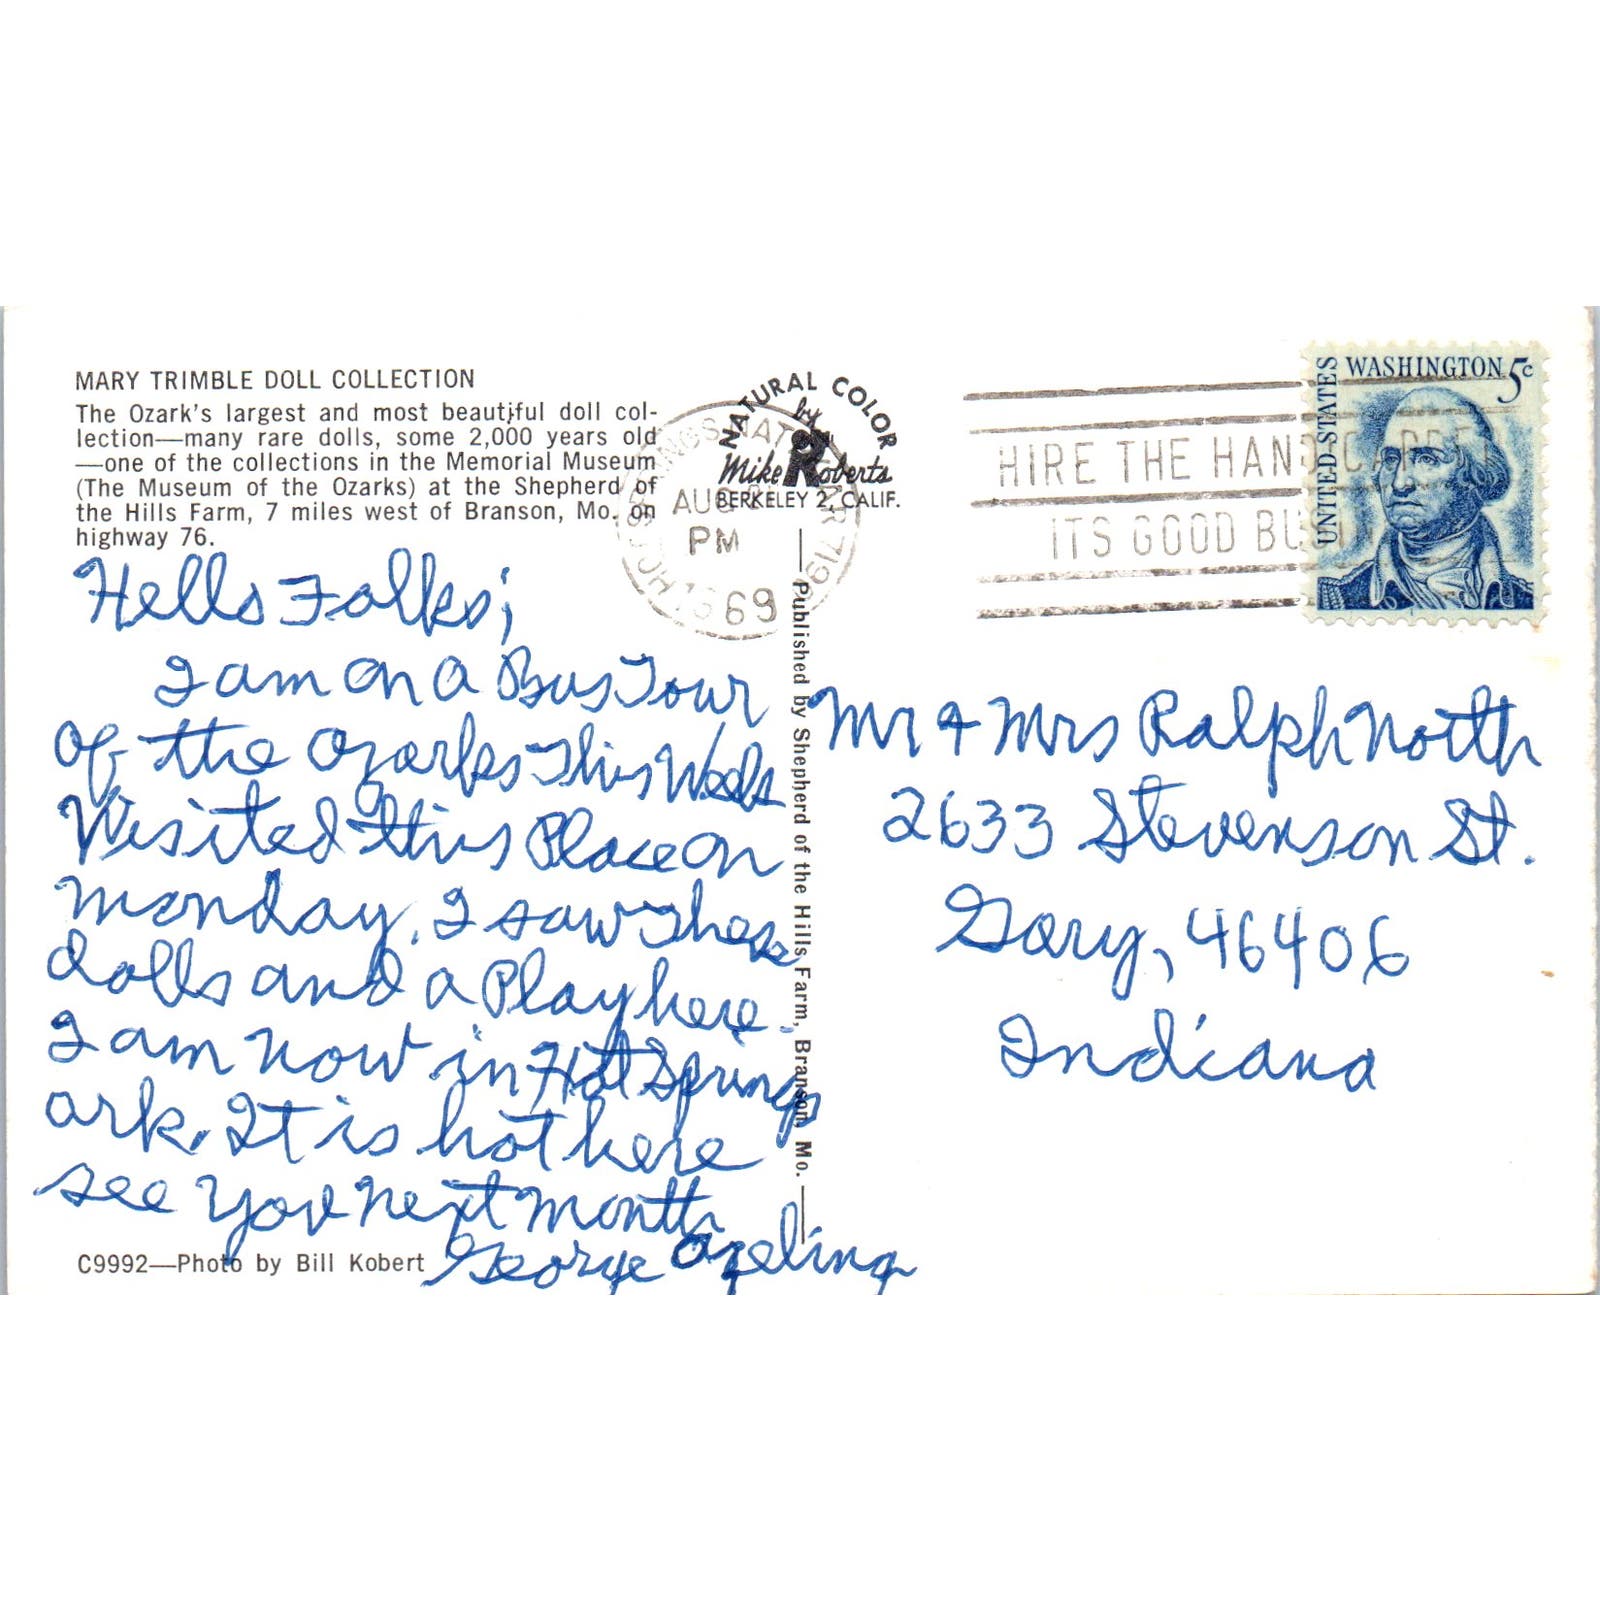 MARY TRIMBLE DOLL COLLECTION
The Ozark's largest and most beautiful doll col-
lection—many rare dolls, some 2,000 years old
—one of the collections in the Memorial Museum
(The Museum of the Ozarks) at the Shepherd of
the Hills Farm, 7 miles west of Branson, Mo. on
highway 76.
Hello Folks;
I am on a Bus Tour
of the Ozarks This Week
Visited this Place on
Monday. I saw These
dolls and a Play here.
I am now in Hot Springs
ark. It is hot here
see you next month
George
C9992—Photo by Bill Kobert
NATURAL COLOR
by
Mike Roberts
BERKELEY 2, CALIF.
Published by Shepherd of the Hills Farm, Branson, Mo.
AUG
PM
69
HIRE THE HANDICAPPED
ITS GOOD BUSIN
UNITED STATES
WASHINGTON 5c
Mr & Mrs Ralph North
2633 Stevenson St.
Gary, 46406
Indiana